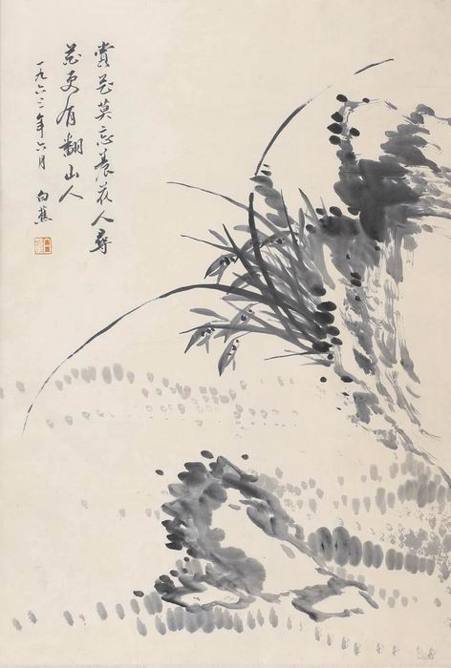 賞花莫忘養花人尋
花更有翻山人
一九六二年六月 白蕉